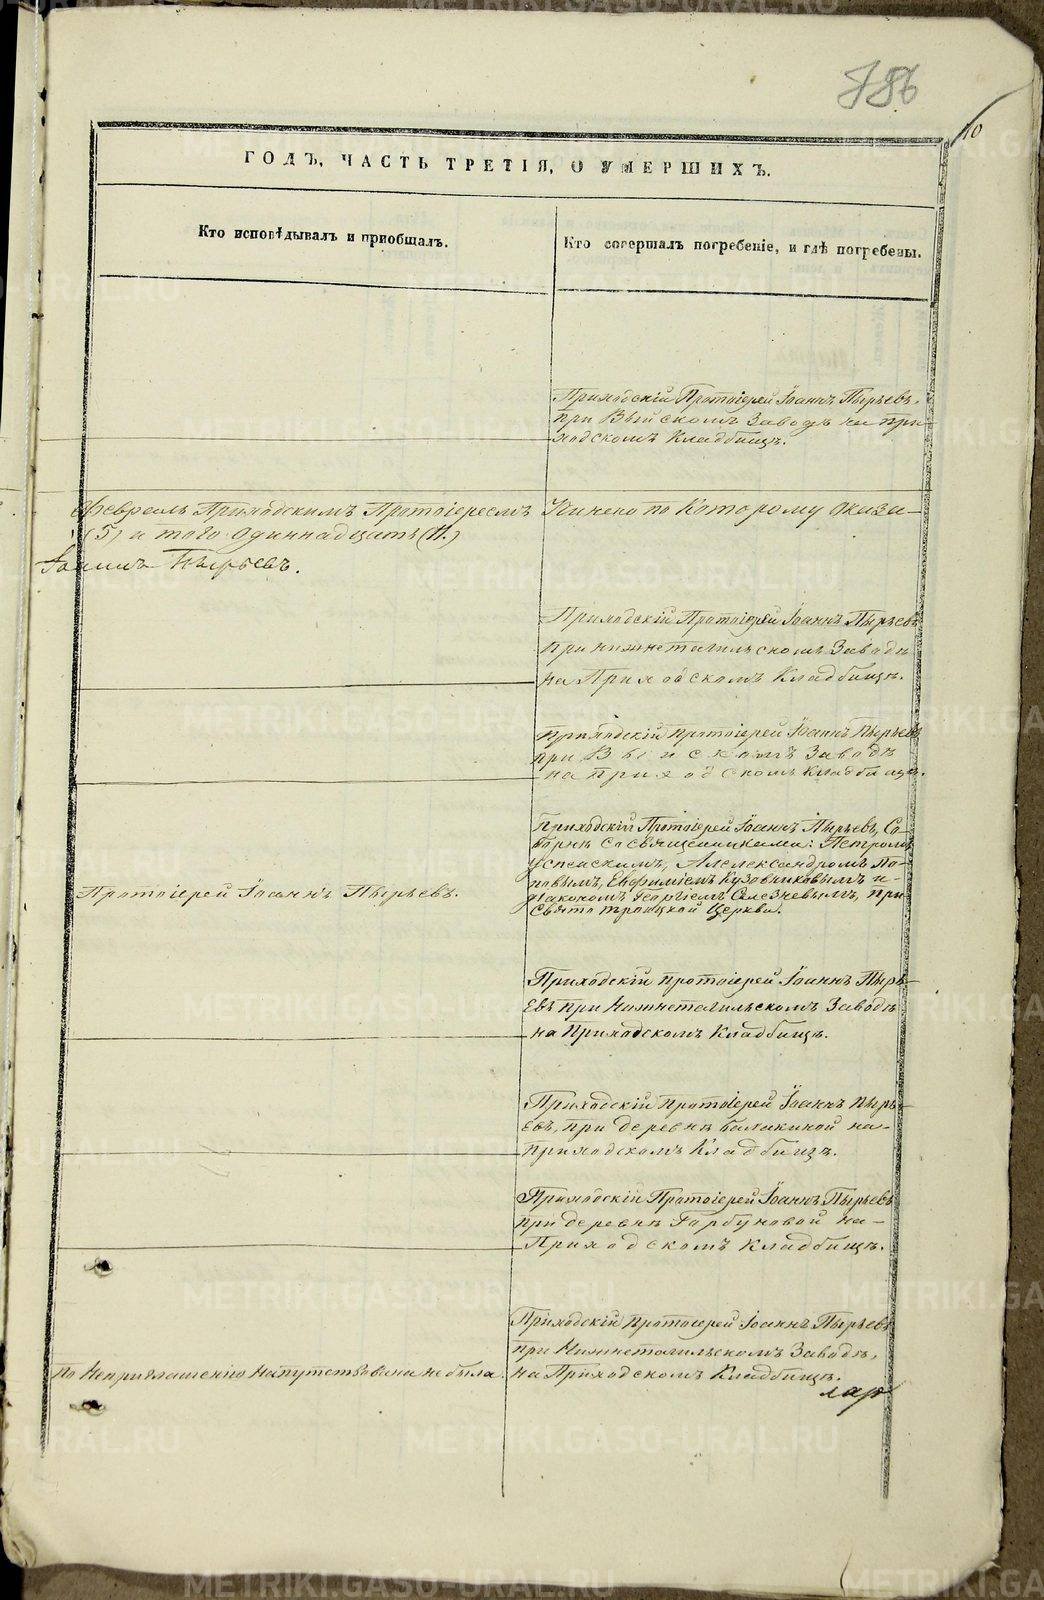 786
10
ГОДЪ, ЧАСТЬ ТРЕТІЯ, О УМЕРШИХЪ.
Кто исповѣдывалъ и приобщалъ.
Кто совершалъ погребеніе, и гдѣ погребены.
Приходскій Протоіерей Іоаннъ Пырьевъ,
при Выйскомъ Заводѣ на При-
ходскомъ Кладбищѣ.
Февраль Приходскимъ Протоіереемъ
(5) и того одиннадцать (11.)
Іоаннъ Пырьевъ.
по Которому оказа-
Приходскій Протоіерей Іоаннъ Пырьевъ
при нижнетагильскомъ Заводѣ
на Приходскомъ Кладбищѣ.
Приходскій Протоіерей Іоаннъ Пырьевъ
при Выйскомъ Заводѣ
на приходскомъ Кладбищѣ.
Протоіерей Іоаннъ Пырьевъ.
Приходскій Протоіерей Іоаннъ Пырьевъ, Со-
борнѣ со священниками: Петромъ
Успенскимъ, Алелександромъ По-
повымъ, Евфиміемъ Кузовниковымъ и
діакономъ Георгіемъ Селезневымъ, при
Свято троицкой Церкви.
Приходскій протоіерей Іоаннъ Пырь-
евъ при Нижнетагильскомъ Заводѣ
на Приходскомъ Кладбищѣ.
Приходскій протоіерей Іоаннъ Пырь-
евъ, при деревнѣ балакиной на-
приходскомъ Кладбищѣ.
Приходскій Протоіерей Іоаннъ Пырьевъ
при деревнѣ Горбуновой на-
Приходскомъ Кладбищѣ.
по Неприглашенію Напутствована не была.
Приходскій протоіерей Іоаннъ Пырьевъ
при Нижнетагильскомъ Заводѣ,
на Приходскомъ Кладбищѣ.
METRIKI.GASO-URAL.RU